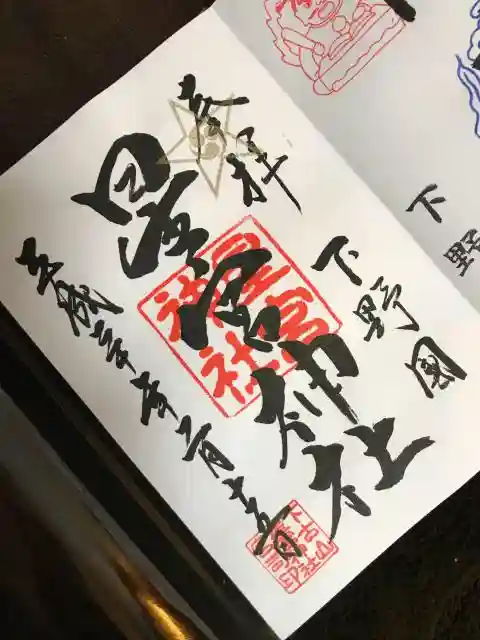 奉拝
下野國
星宮神社
星宮
神社
平成三十年二月十五日
下野